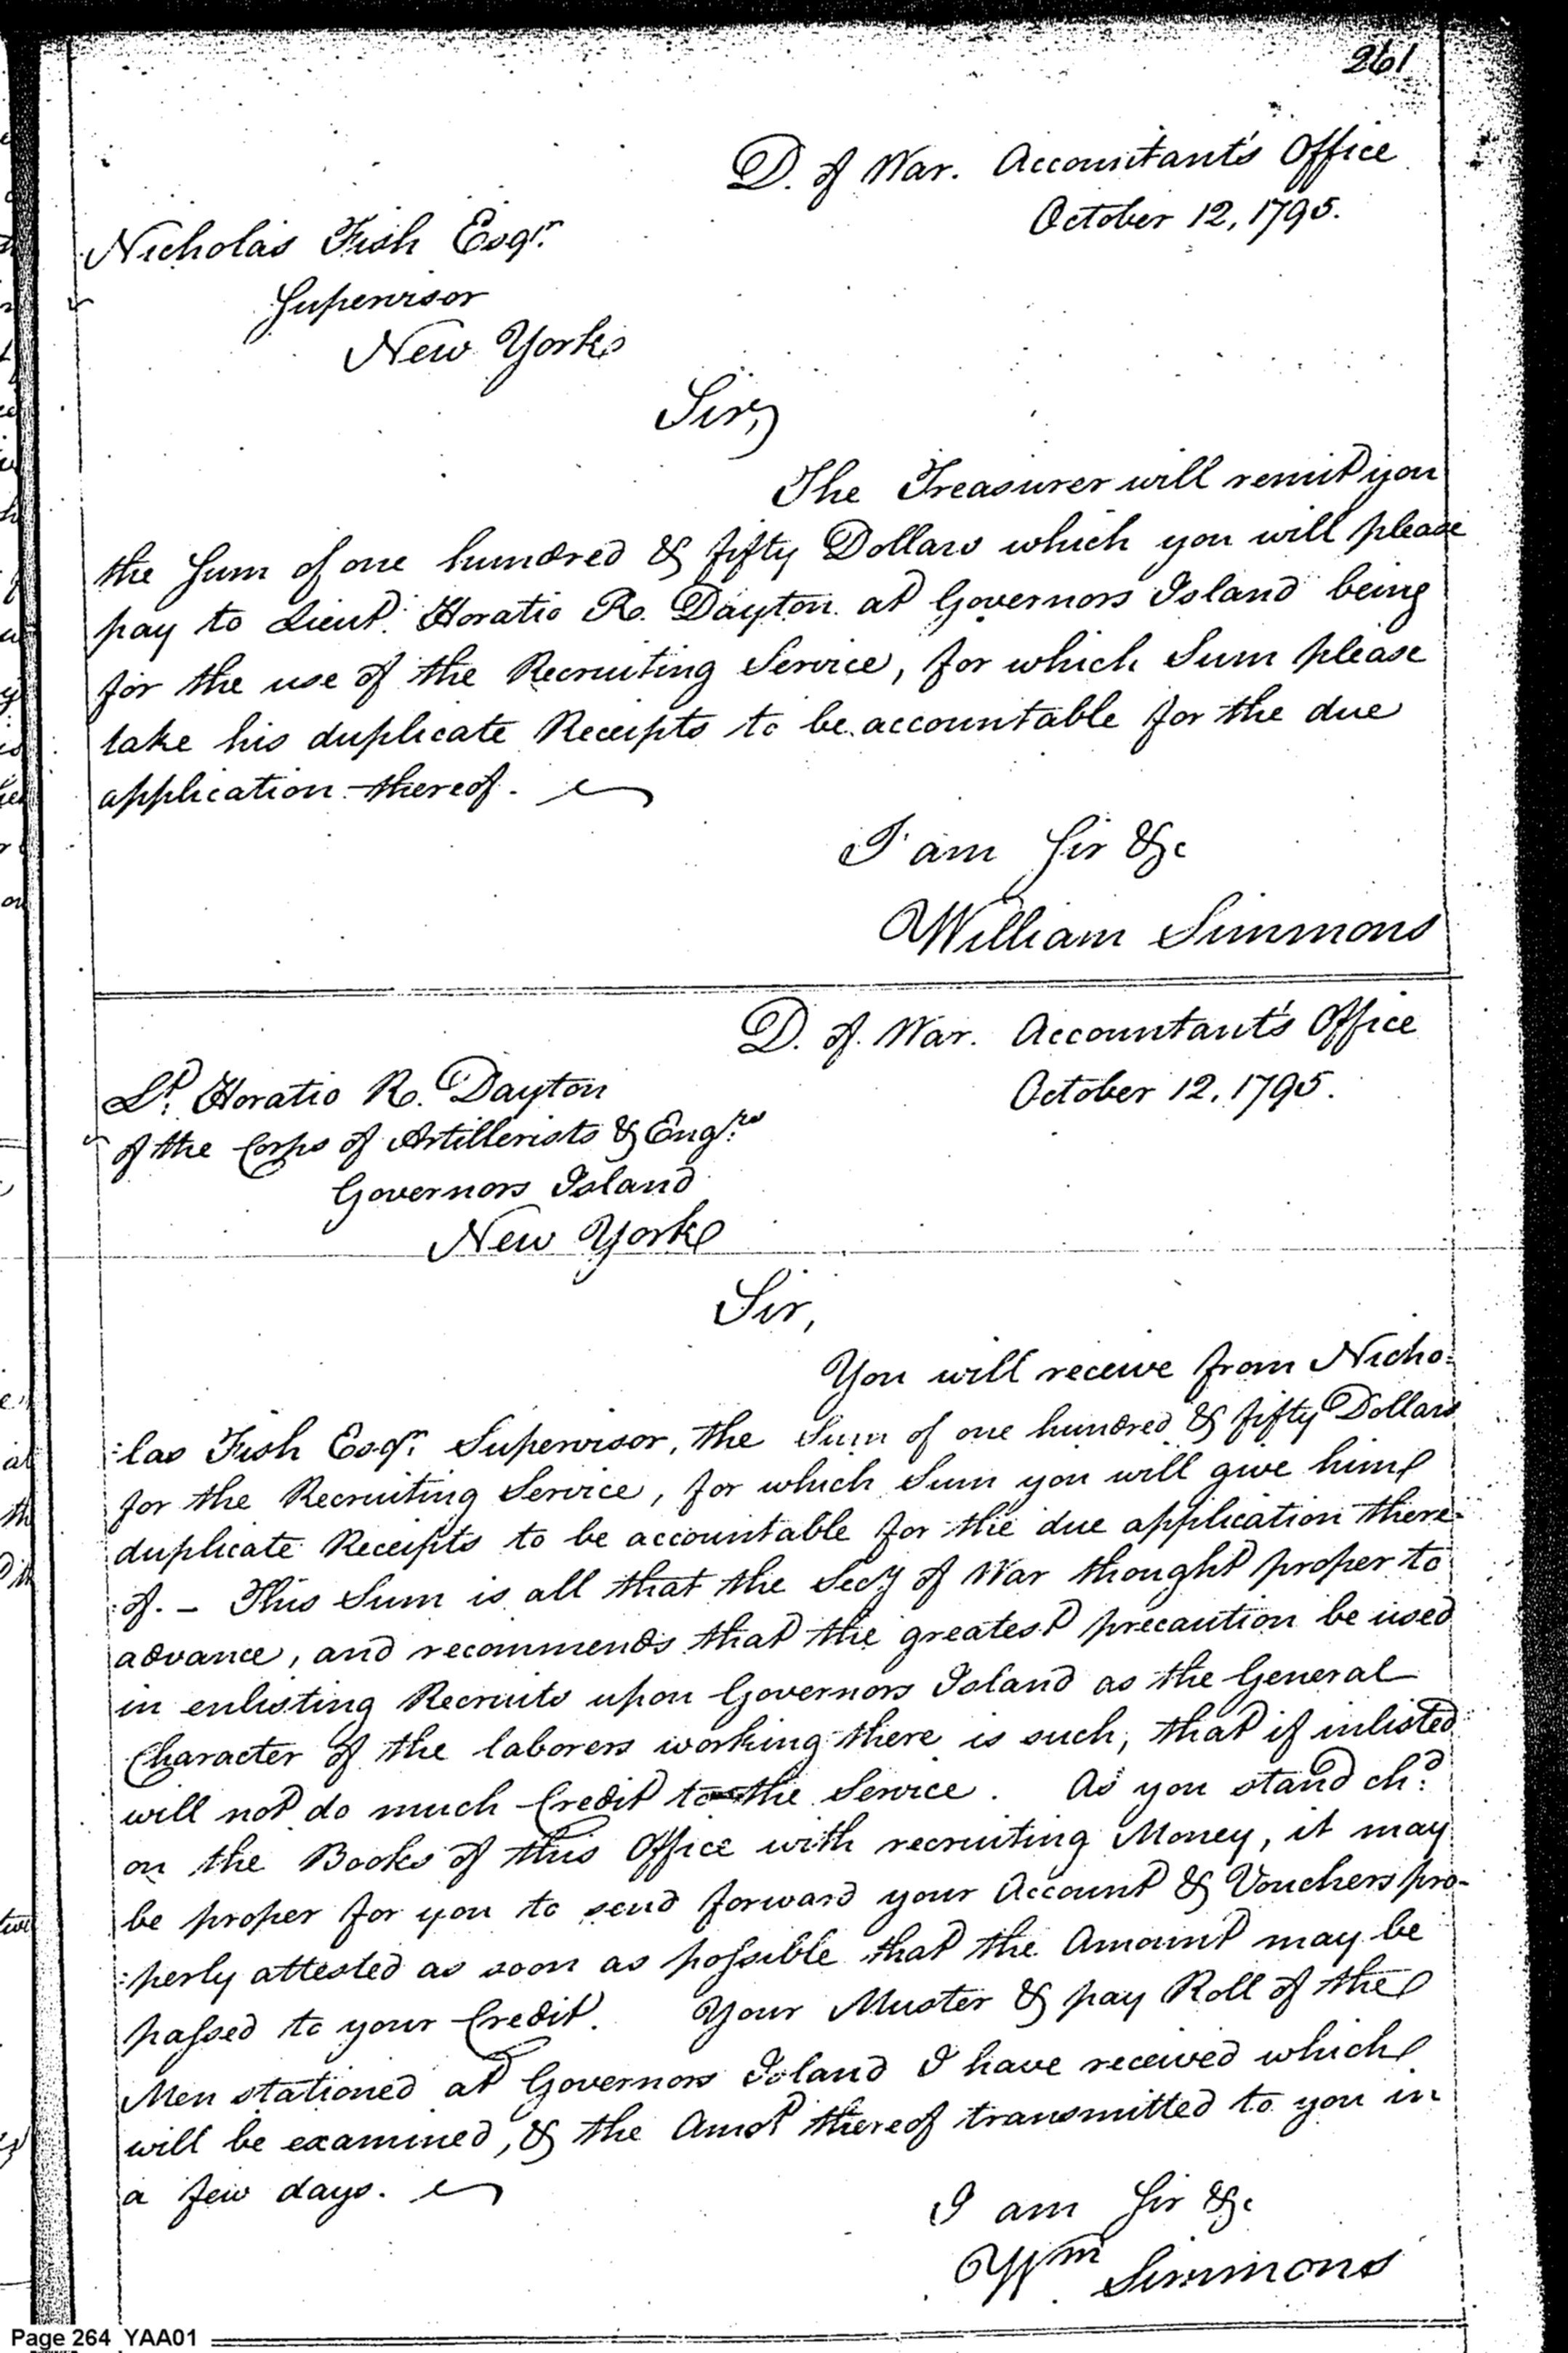 261
D. of War. Accountant's Office
October 12, 1795.
Nicholas Fish Esqr.
Supervisor
New York
Sir,
The Treasurer will remit you
the Sum of one hundred & fifty Dollars which you will please
pay to Lieut. Horatio R. Dayton at Governors Island being
for the use of the Recruiting Service, for which Sum please
take his duplicate Receipts to be accountable for the due
application thereof.
I am Sir &c
William Simmons
D. of War. Accountant's Office
October 12, 1795.
Lt. Horatio R. Dayton
of the Corps of Artillerists & Engrs.
Governors Island
New York
Sir,
You will receive from Nicho-
:las Fish Esqr. Supervisor, the Sum of one hundred & fifty Dollars
for the Recruiting Service, for which Sum you will give him
duplicate Receipts to be accountable for the due application there-
:of. – This Sum is all that the Secy of War thought proper to
advance, and recommends that the greatest precaution be used
in enlisting Recruits upon Governors Island as the General
Character of the laborers working there is such, that if inlisted
will not do much Credit to the Service. As you stand chd.
on the Books of this Office with recruiting Money, it may
be proper for you to send forward your Account & Vouchers pro-
:perly attested as soon as possible that the Amount may be
passed to your Credit. Your Muster & pay Roll of the
Men stationed at Governors Island I have received which
will be examined, & the Amot thereof transmitted to you in
a few days.
I am Sir &c
Wm Simmons
Page 264 YAA01